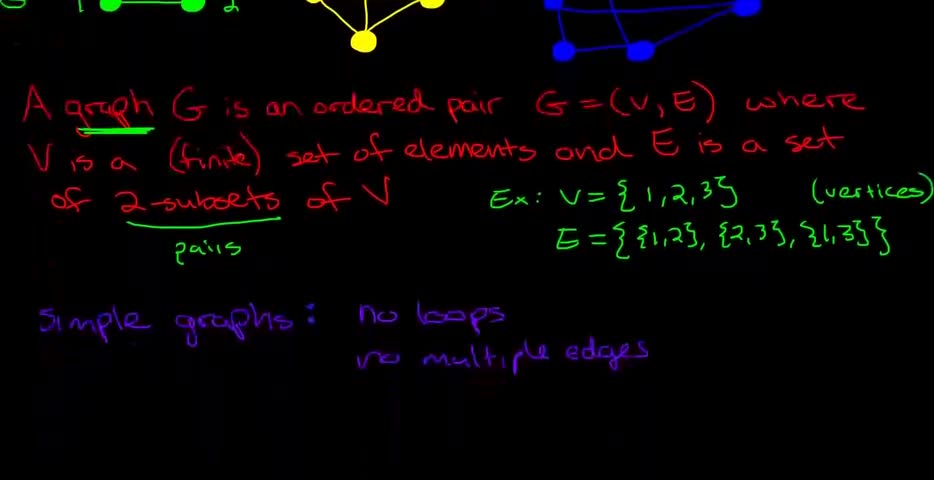 1 2
A graph G is an ordered pair G = (V, E) where
V is a (finite) set of elements and E is a set
of 2-subsets of V
pairs
Ex: V = {1,2,3} (vertices)
E = {{1,2}, {2,3}, {1,3}}
simple graphs: no loops
no multiple edges